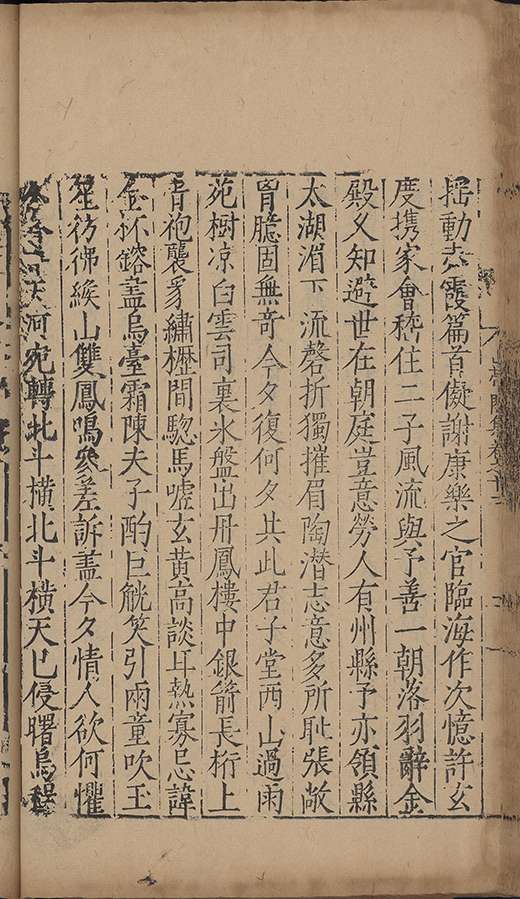 搖動赤霞篇首儗謝康樂之官臨海作次憶許玄
度携家會稽住二子風流與予善一朝落羽辭金
殿乂知避世在朝庭豈意勞人有州縣予亦領縣
太湖湄下流磬折獨摧眉陶潜志意多所耻張敞
胷臆固無奇今夕復何夕共此君子堂西山過雨
苑樹凉白雲司裏氷盤出丹鳳樓中銀箭長桁上
青袍襲豸繡櫪間騘馬嘘玄黄高談耳熱寡忌諱
金杯鎔盖烏臺霜陳夫子酌巨觥笑引兩童吹玉
笙彷彿緱山雙鳳鳴叅差訴盖今夕情人欲何懼
天河宛轉北斗橫北斗橫天已侵曙烏程